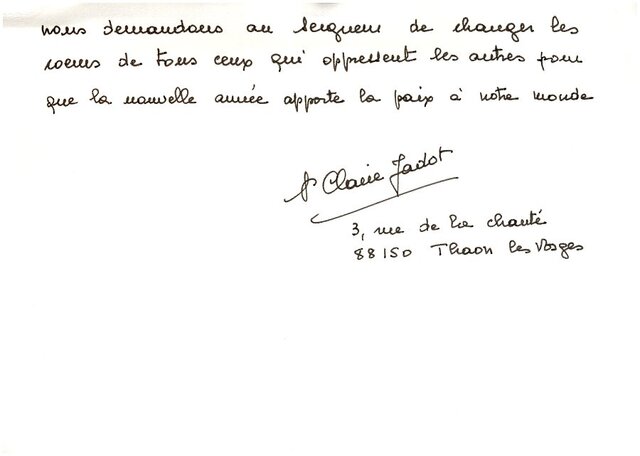 nous demandons au Seigneur de changer les
coeurs de tous ceux qui oppressent les autres pour
que la nouvelle année apporte la paix à notre monde
Sr Claire Jadot
3, rue de la charité
88150 Thaon les Vosges